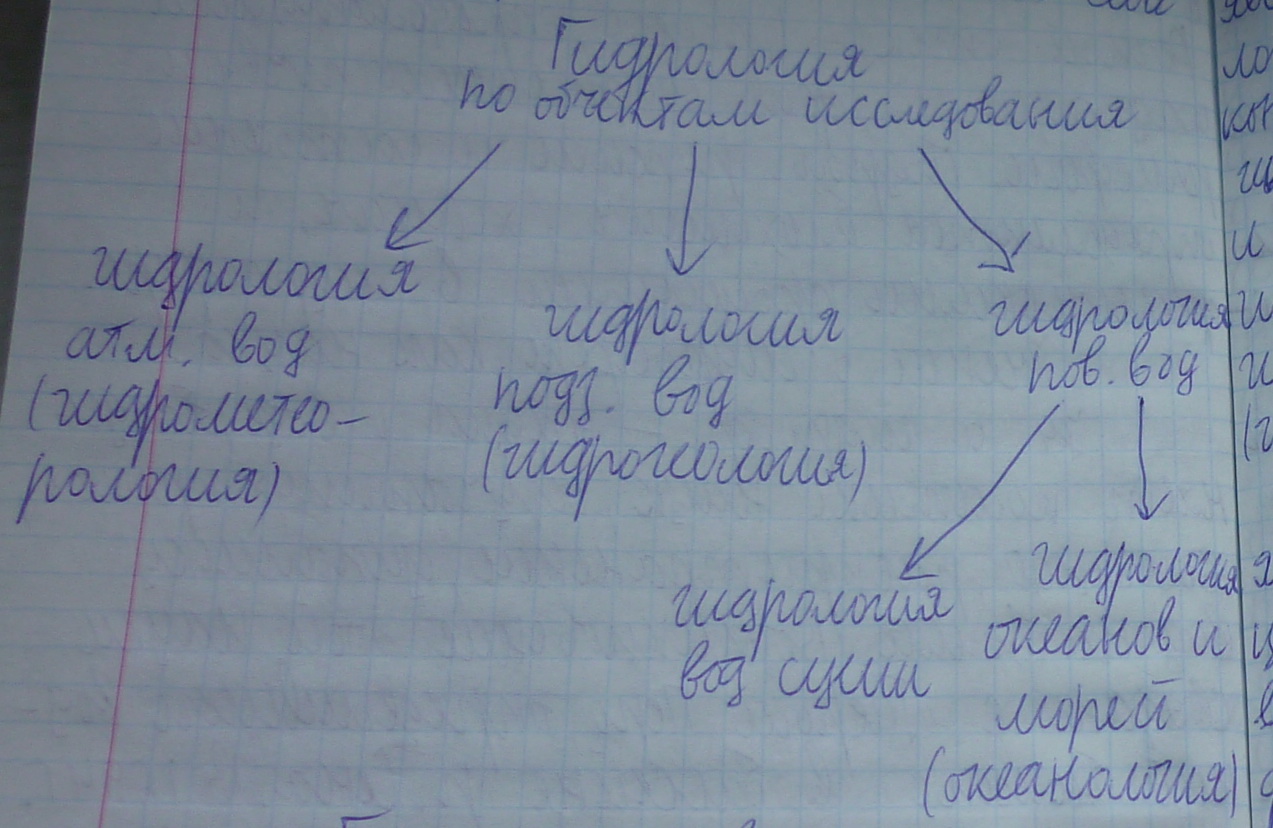 Гидрология
по объектам исследования
гидрология
атм. вод
(гидрометео-
рология)
гидрология
подз. вод
(гидрогеология)
гидрология
пов. вод
гидрология
вод суши
гидрология
океанов и
морей
(океанология)